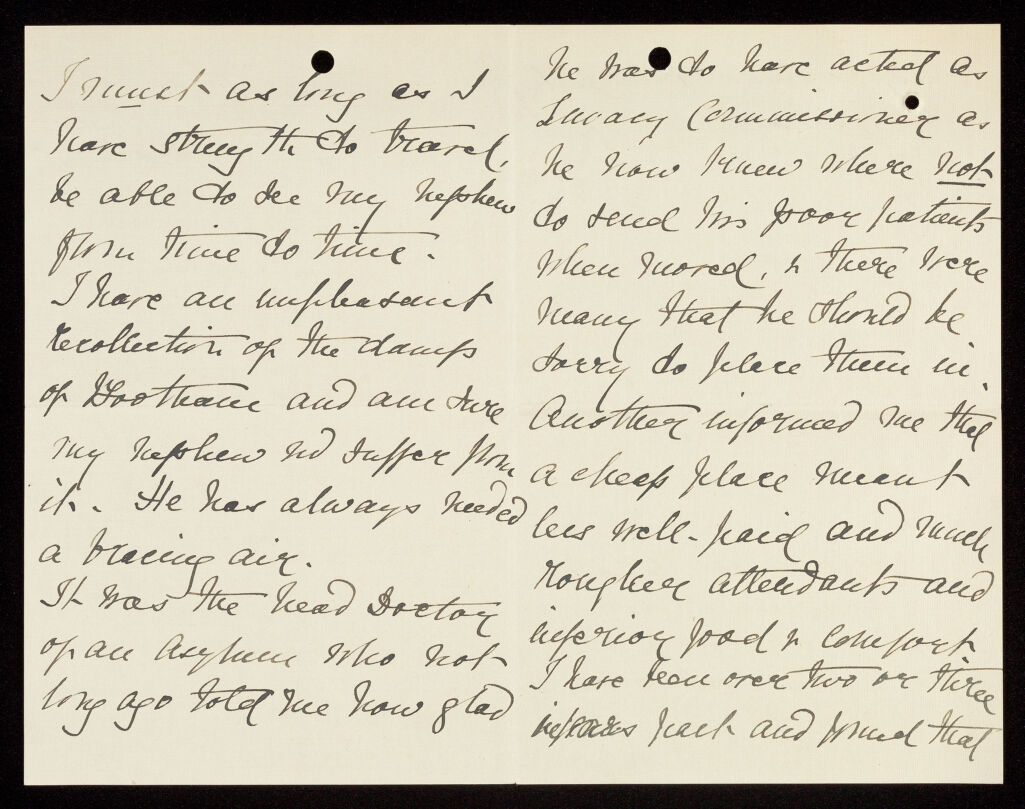 I must as long as I
have strength to travel,
be able to see my nephew
from time to time.
I have an unpleasant
recollection of the damps
of Bootham and am sure
my nephew wd suffer from
it. He has always needed
a bracing air.
It was the head Doctor
of an Asylum who not
long ago told me how glad
he was to have acted as
Lunacy Commissioner as
he now knew where not
to send his poor patients
when moved, & there were
many that he should be
sorry to place them in.
Another informed me that
a cheap place meant
less well-paid and much
rougher attendants and
inferior food & comfort
I have been over two or three
years past and found that